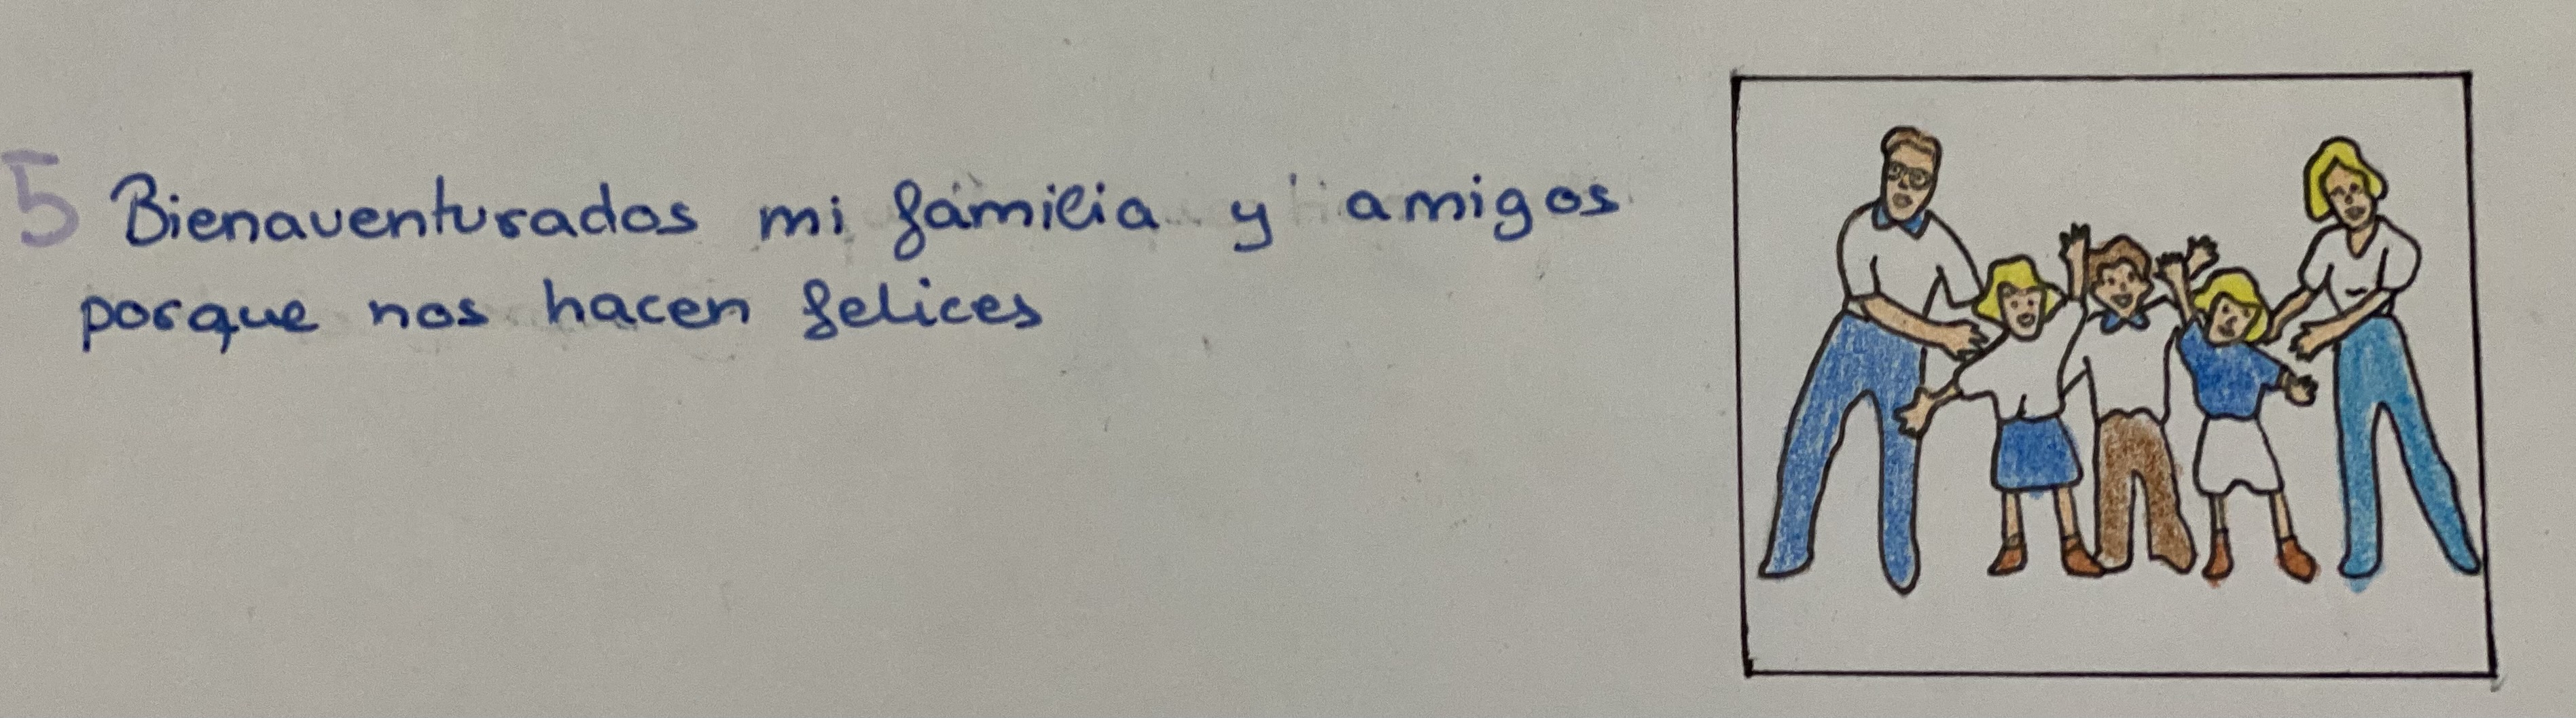 5 Bienaventurados mi familia y amigos
porque nos hacen felices